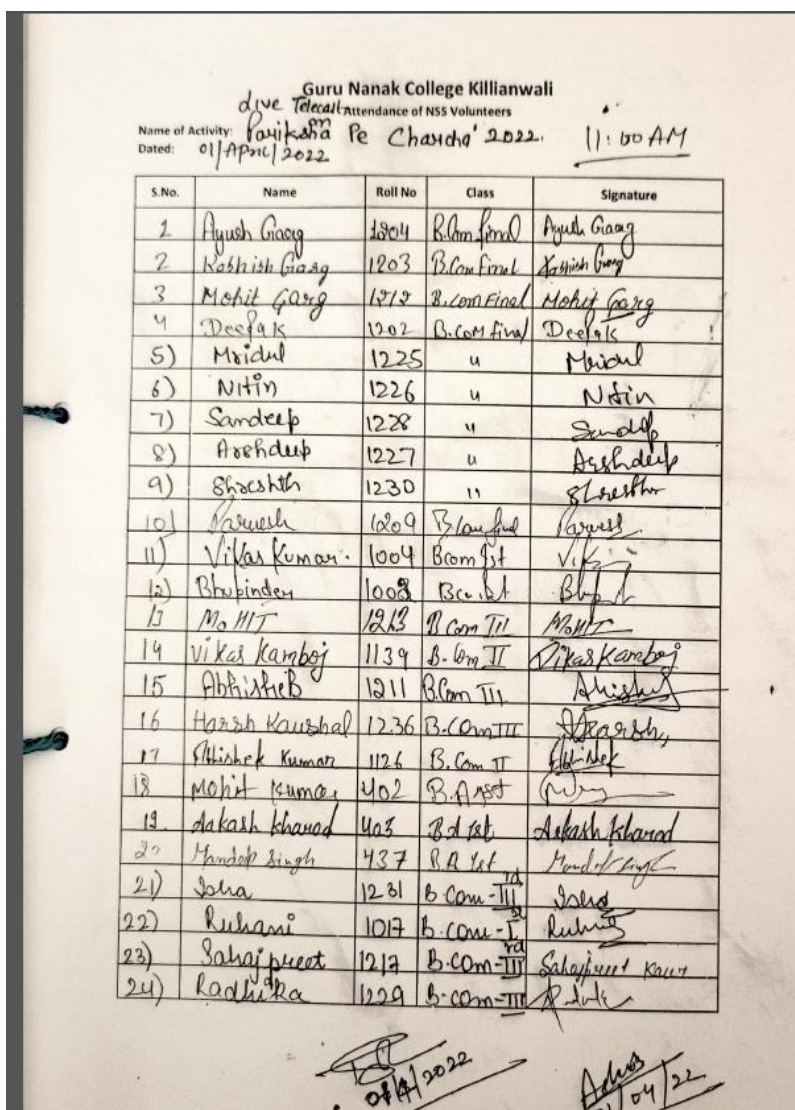 Guru Nanak College Killianwali
Live Telecast on
Attendance of NSS Volunteers
Name of Activity: Pariksha Pe Charcha' 2022. 11:00 AM
Dated: 01/April/2022
S.No. Name Roll No Class Signature
1 Ayush Garg 1204 B.Com final Ayush Garg
2 Kashish Garg 1203 B.Com Final Kashish Garg
3 Mohit Garg 1212 B.com Final Mohit Garg
4 Deepak 1202 B.COM final Deepak
5) Mridul 1225 " Mridul
6) Nitin 1226 " Nitin
7) Sandeep 1228 " Sandeep
8) Arshdeep 1227 " Arshdeep
9) Shreshth 1230 " Shreshth
10) Parvesh 1209 B.Com final Parvesh
11) Vikas Kumar. 1004 Bcom Ist
12) Bhupinder 1008
13 MOHIT 1213 B Com III MOHIT
14 Vikas Kamboj 1139 B.Com II Vikas Kamboj
15 Abhishek 1211 B.Com III
16 Harsh Kaushal 1236 B.COm III Harsh
17 Abhishek Kumar 1126 B.Com II Abhishek
18 Mohit Kumar 402
19. Aakash kharod 403 B A 1st Aakash Kharod
20 Mandeep Singh 437 B.A 1st Mandeep Singh
21) Isha 1231 B Com-III rd Isha
22) Ruhani 1017 B.Com-I st
23) Sahajpreet 1217 B.COM-III rd Sahajpreet Kaur
24) Radhika 1229 B-COM-III
/2022
/04/22